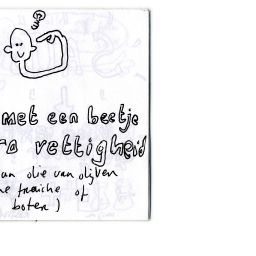 met een beetje
ra vettigheid
an olie van olijven
me fraiche of
boter )